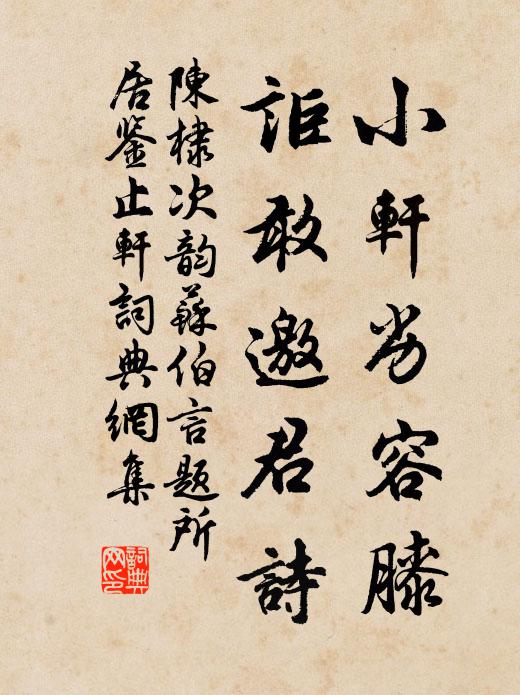 小軒劣容膝
詎敢邀君詩
陳棣次韵蘇伯言題所
居鉴止軒詞典網集
詞典
网印